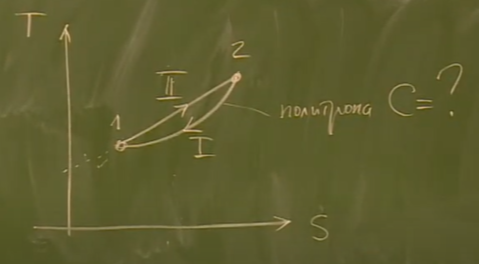 T
2
II
1
политропа C=?
I
S